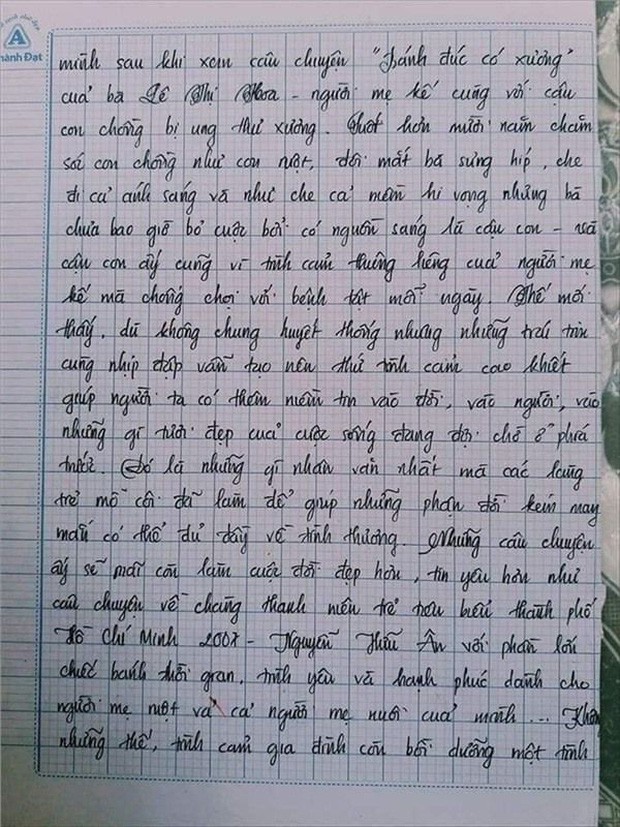 A
hành Đạt
mình sau khi xem câu chuyện "Bánh đúc có xương"
của bà Lê Thị Hoa - người mẹ kế cùng với cậu
con chồng bị ung thư xương. Suốt hơn mười năm chăm
sóc con chồng như con ruột, đôi mắt bà sưng híp, che
đi cả ánh sáng và như che cả niềm hi vọng nhưng bà
chưa bao giờ bỏ cuộc bởi có nguồn sáng là cậu con - mà
cậu con ấy cũng vì tình cảm thương liêng của người mẹ
kế mà chống chọi với bệnh tật mỗi ngày. Thế mới
thấy, dù không chung huyết thống nhưng những trái tim
cùng nhịp đập vẫn tạo nên thứ tình cảm cao khiết
giúp người ta có thêm niềm tin vào đời, vào người, vào
những gì tươi đẹp của cuộc sống đang đợi chờ ở phía
trước. Đó là những gì nhân văn nhất mà các làng
trẻ mồ côi đã làm để giúp những phận đời kém may
mắn có thể đủ đầy về tình thương. Những câu chuyện
ấy sẽ mãi còn làm cuộc đời đẹp hơn, tin yêu hơn như
câu chuyện về chàng thanh niên trẻ tiêu biểu thành phố
Hồ Chí Minh 2007 - Nguyễn Hữu Ân với phần lớn
chiếc bánh thời gian, tình yêu và hạnh phúc dành cho
người mẹ ruột và cả người mẹ nuôi của mình... Không
những thế, tình cảm gia đình còn bồi dưỡng một tình